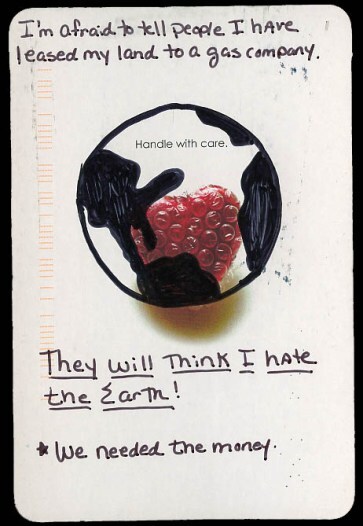 I'm afraid to tell people I have
leased my land to a gas company.
Handle with care.
They will Think I hate
the Earth!
* We needed the money.